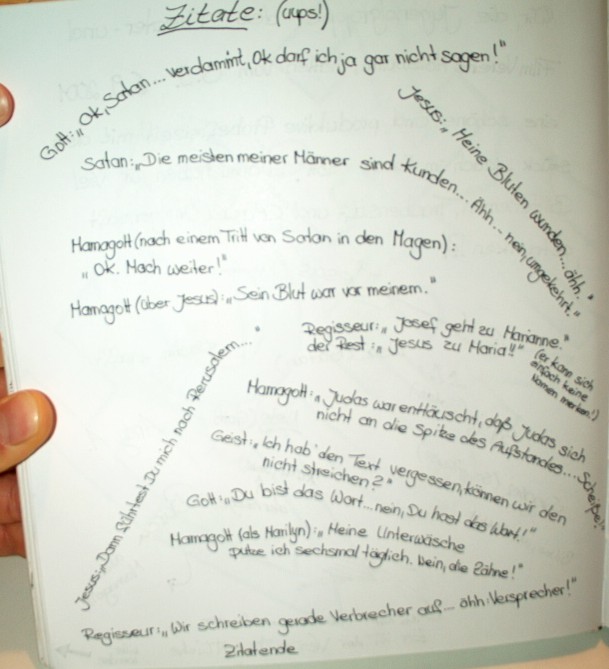 Zitate: (ups!)
Gott: „Ok, Satan... verdammt, Ok darf ich ja gar nicht sagen!"
Jesus: „Meine Bluten wunden... ähh."
Ähh... nein, umgekehrt."
Satan: „Die meisten meiner Männer sind Kunden...
Hamagott (nach einem Tritt von Satan in den Magen):
„Ok. Mach weiter!"
Hamagott (über Jesus): „Sein Blut war vor meinem."
Regisseur: „Josef geht zu Marianne."
der Rest: „Jesus zu Maria!!" (er kann sich
einfach keine
Namen merken!)
Hamagott: „Judas war enttäuscht, daß Judas sich
nicht an die Spitze des Aufstandes... Scheiße!
Geist: „Ich hab' den Text vergessen, können wir den
nicht streichen?"
Gott: „Du bist das Wort... nein, Du hast das Wort!"
Hamagott (als Marilyn): „Meine Unterwäsche
putze ich sechsmal täglich. Nein, die Zähne!"
Jesus: „Dann führtest Du mich nach Perusalem..."
Regisseur: „Wir schreiben gerade Verbrecher auf... ähh: Versprecher!"
Zitatende